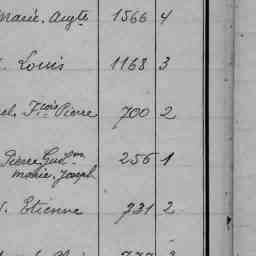 Marie, Augte 1566 4
Louis 1168 3
Fçois Pierre 700 2
Pierre Guilm 256 1
Marie, Joseph
Etienne 731 2